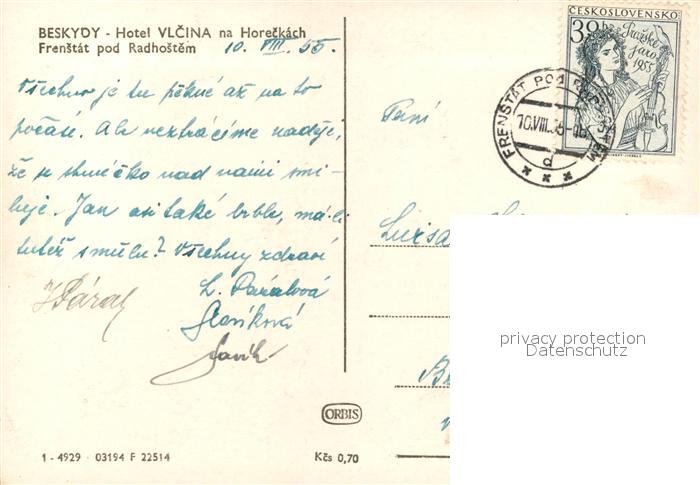 BESKYDY - Hotel VLČINA na Horečkách
Frenštát pod Radhoštěm
10. VIII. 55.
Všechno je tu pěkné až na to
počasí. Ale neztrácíme naději,
že se sluníčko nad námi smi-
luje. Jan asi také brble, má-li
tutéž smůlu? Všechny zdraví
L. Páralová
ČESKOSLOVENSKO
30 h
Pražské
jaro
1955
FRENŠTÁT POD RADHOŠTĚM
10.VIII.55
d
Paní
privacy protection
Datenschutz
ORBIS
1 - 4929 · 03194 F 22514
Kčs 0,70